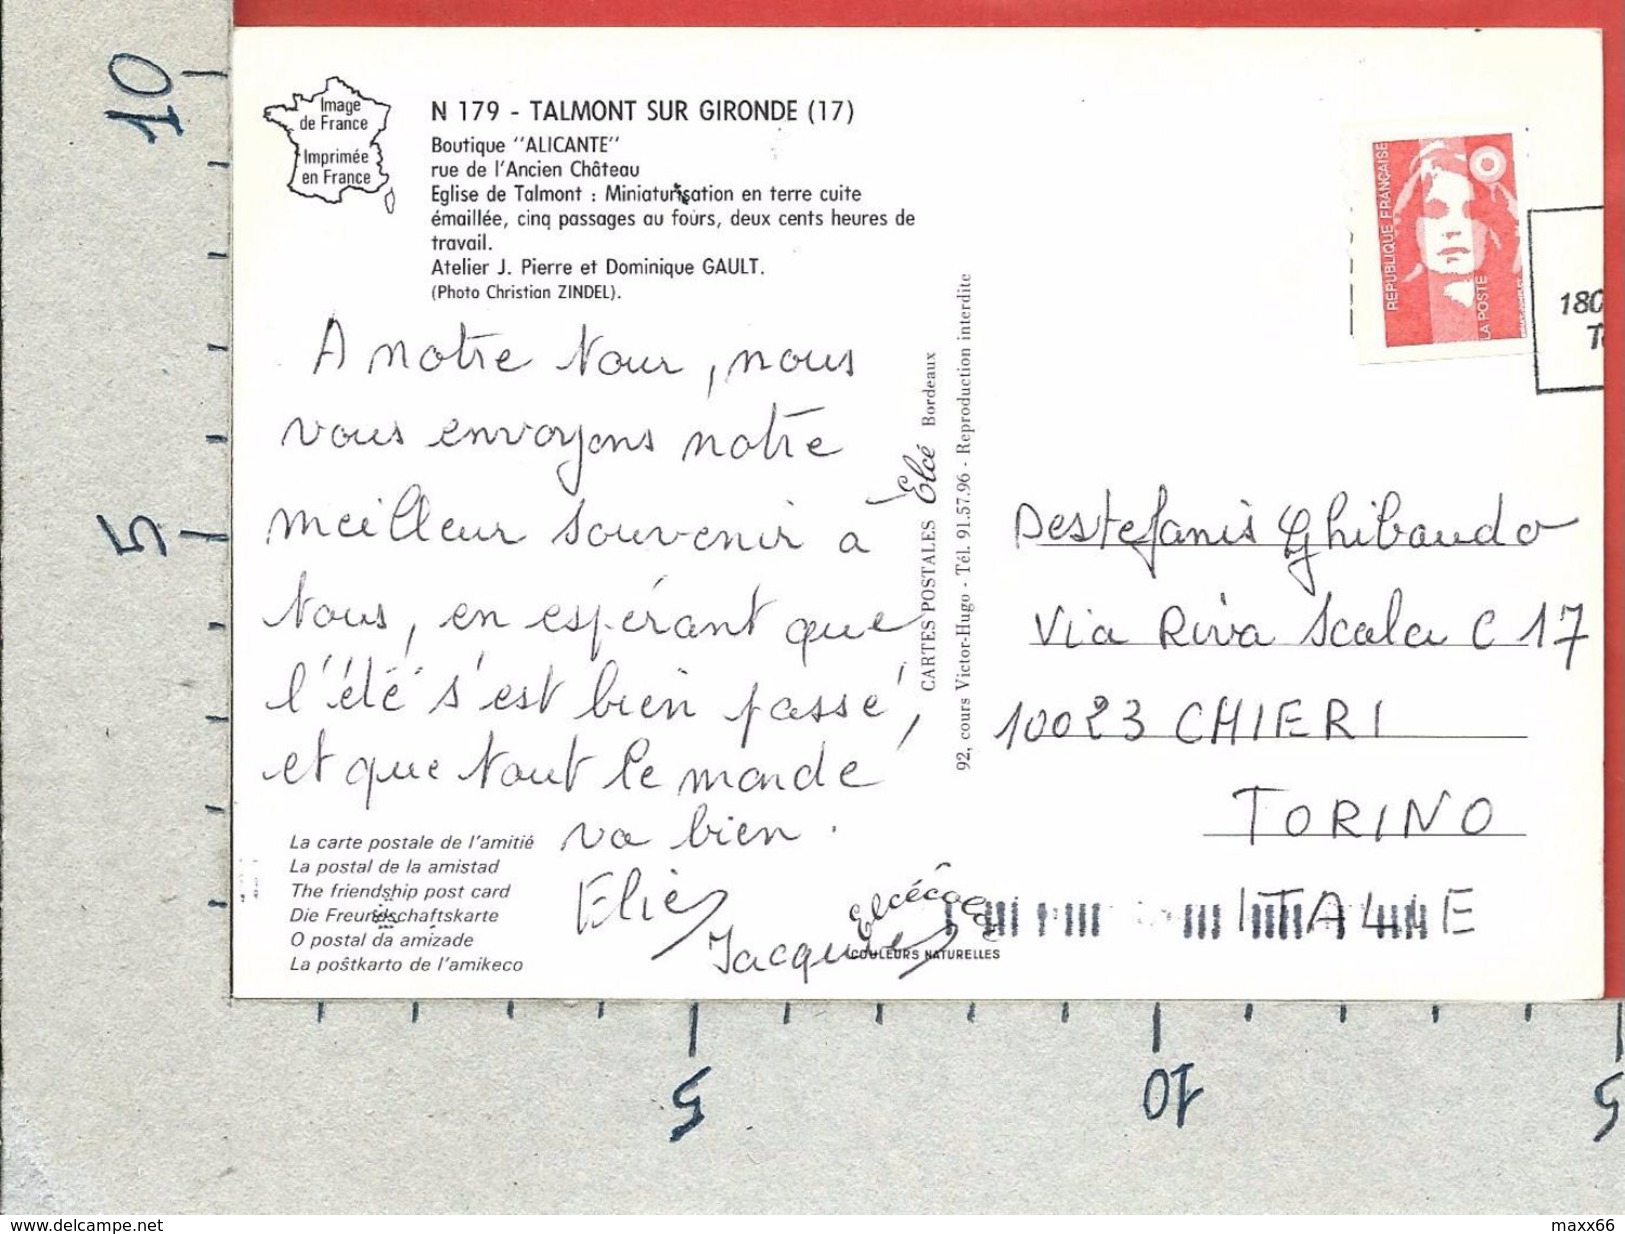 10
5
Image
de France
Imprimée
en France
N 179 - TALMONT SUR GIRONDE (17)
Boutique "ALICANTE"
rue de l'Ancien Château
Eglise de Talmont : Miniaturisation en terre cuite
émaillée, cinq passages au fours, deux cents heures de
travail.
Atelier J. Pierre et Dominique GAULT.
(Photo Christian ZINDEL).
A notre tour, nous
vous envoyons notre
meilleur souvenir à
tous, en espérant que
l'été s'est bien passé,
et que tout le monde
va bien.
Elie
Jacqueline
La carte postale de l'amitié
La postal de la amistad
The friendship post card
Die Freundschaftskarte
O postal da amizade
La poŝtkarto de l'amikeco
CARTES POSTALES Elcé Bordeaux
92, cours Victor-Hugo - Tél. 91.57.96 - Reproduction interdite
COULEURS NATURELLES
REPUBLIQUE FRANÇAISE
LA POSTE
180
Destefanis Ghibaudo
Via Riva Scala C 17
10023 CHIERI
TORINO
ITALIE
5
10
5
www.delcampe.net
maxx66